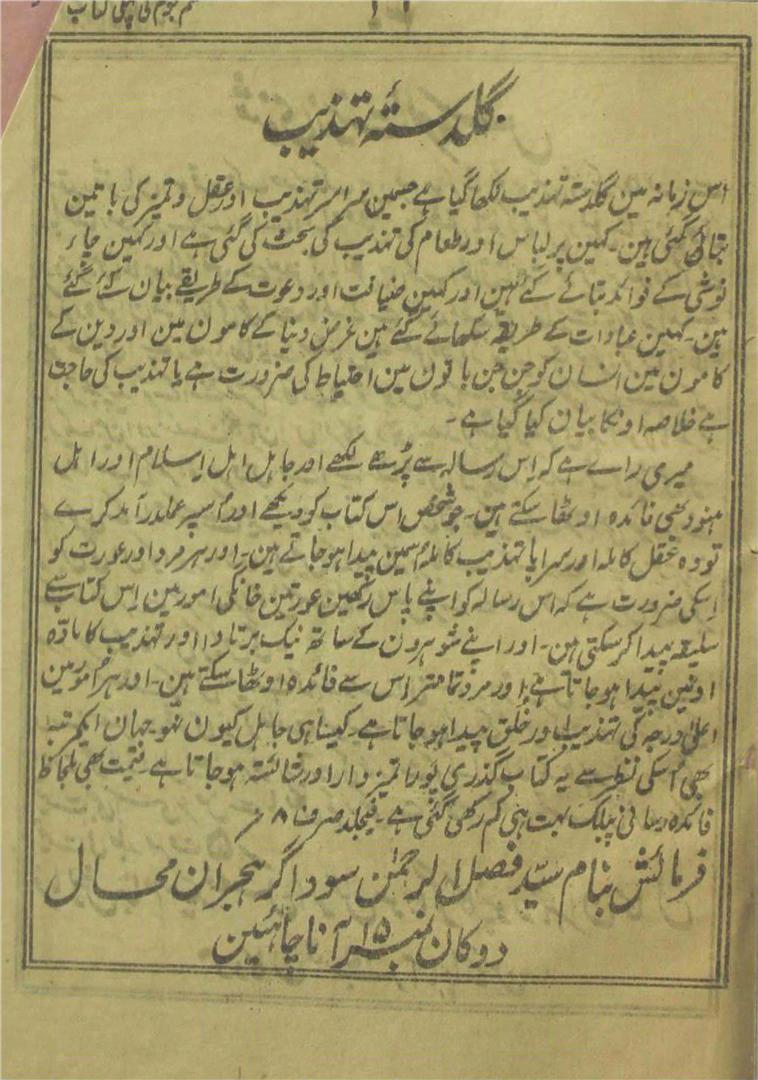 نجوم کی پہلی کتاب
گلدستۂ تہذیب
اس زمانہ مین گلدستہ تہذیب لکھا گیا ہے جسمین سراسر تہذیب اور عقل و تمیز کی باتین
بتائی گئی ہین۔ کہین پر لباس اور طعام کی تہذیب کی بحث کی گئی ہے اور کہین چاء
نوشی کے فوائد بتائے گئے ہین اور کہین ضیافت اور دعوت کے طریقے بیان کئے گئے
ہین۔ کہین عبادات کے طریقے سکھائے گئے ہین غرض دنیا کے کامون مین اور دین کے
کامون مین انسان کو جن جن باتون مین احتیاط کی ضرورت ہے یا تہذیب کی حاجت
ہے خلاصہ اونکا بیان کیا گیا ہے۔
میری راے ہے کہ اِس رسالہ سے پڑھے لکھے اور جاہل اہل اِسلام اور اہل
ہنود بھی فائدہ اوٹھا سکتے ہین۔ جو شخص اس کتاب کو دیکھے اور اُسپر عملدرآمد کرے
تو وہ عقل کاملہ اور سراپا تہذیب کاملہ اُسمین پیدا ہو جاتے ہین۔ اور ہر مرد اور عورت کو
اِسکی ضرورت ہے کہ اس رسالہ کو اپنے پاس رکھین عورتین خانگی امور مین اِس کتاب سے
سلیقہ پیدا کر سکتی ہین۔ اور اپنے شوہرون کے ساتھ نیک برتاوا اور تہذیب کا مادّہ
اونمین پیدا ہو جاتا ہے اور مرد تمامتر اس سے فائدہ اوٹھا سکتے ہین۔ اور ہر اُمور مین
اعلیٰ درجہ کی تہذیب اور خُلق پیدا ہو جاتا ہے۔ کیسا ہی جاہل کیون نہو جہان ایکمرتبہ
بھی اُسکی نظر سے یہ کتاب گذری پورا تمیزدار اور شائستہ ہو جاتا ہے۔ قیمت بھی بلحاظ
فائدہ رسانی پبلک بہت ہی کم رکھی گئی ہے۔ فیجلد صرف ۸؍
فرمائش بنام سیّد فضل الرحمٰن سوداگر ہجران محال
دوکان نمبر ۱۵ آنا چاہئین